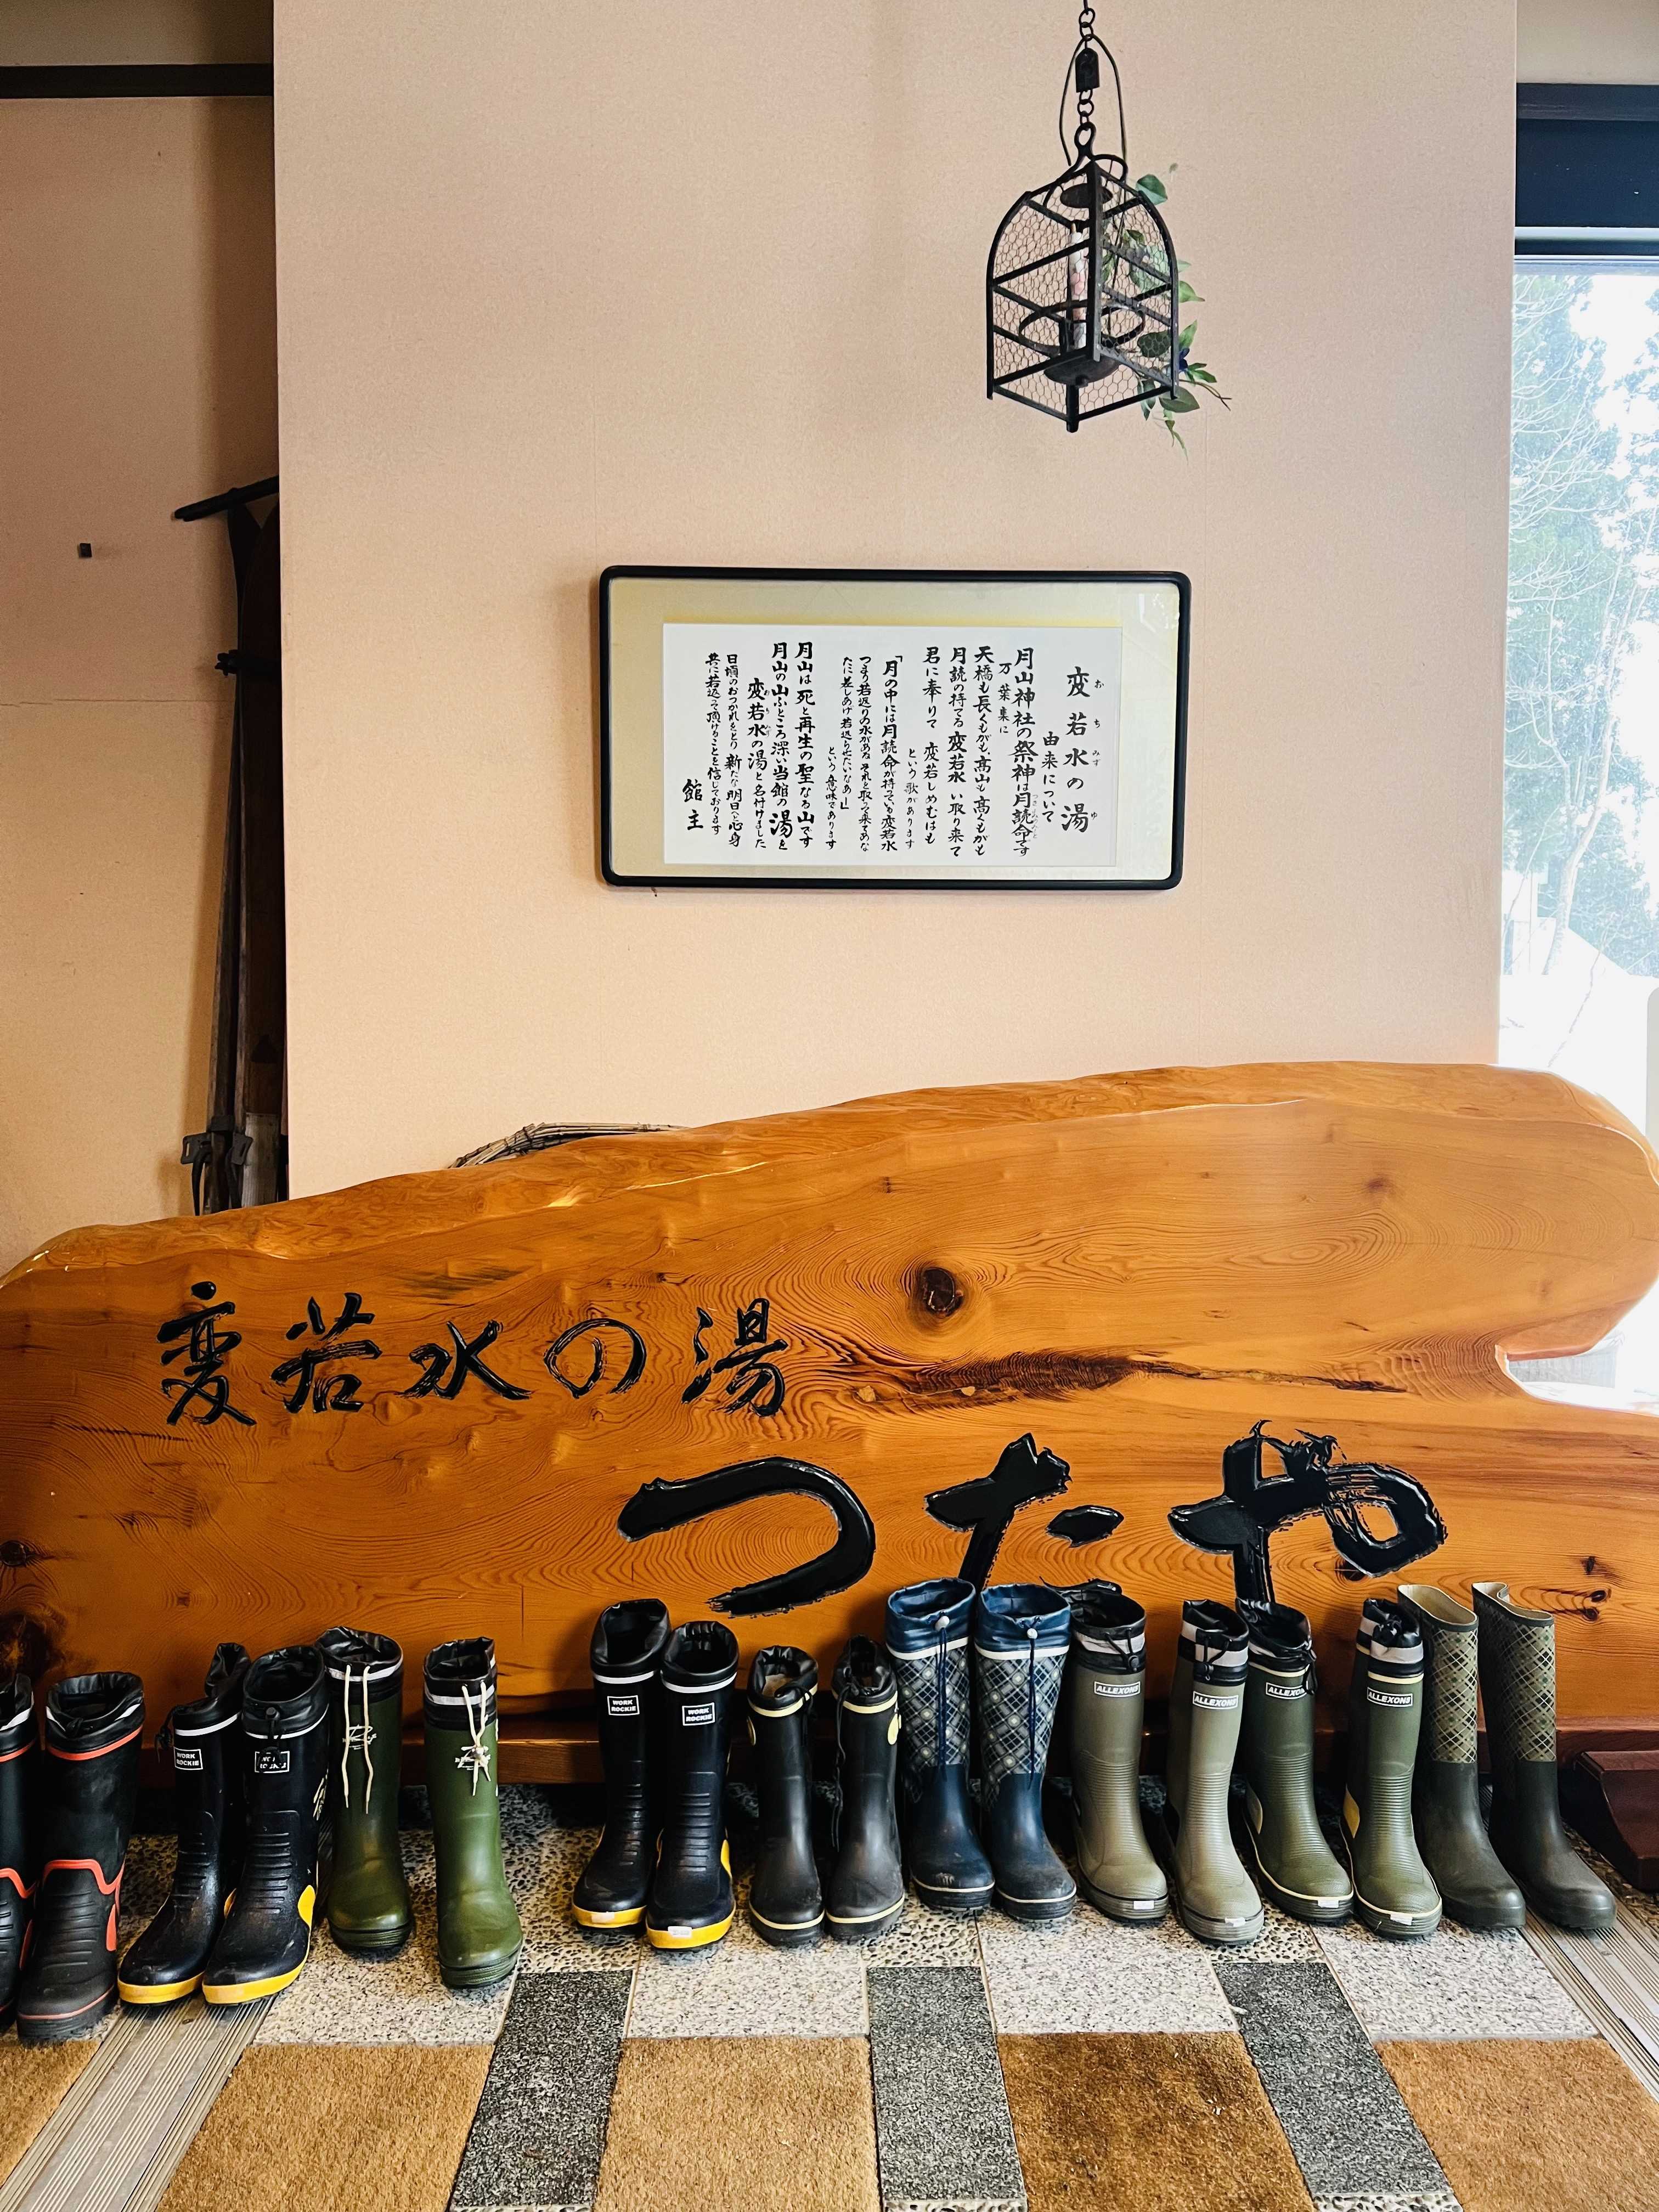 変若水の湯
おちみずゆ
由来について
月山神社の祭神は月読命です
万葉集に
天橋も長くもがも、高山も高くもがも
月読の持てる変若水い取り来て
君に奉りて変若しめむはも
という歌があります
「月の中には月読命が持っている変若水
つまり若返りの水がある それを取って来てあな
たに差しあげ若返らせたいなあー」
という意味であります
月山は死と再生の聖なる山です
月山の山ふところ深い当館の湯を
変若水の湯と名付けました
日頃のおつかれをとり新たな明日へと心身
共に若返って頂けることを信じております
館主
変若水の湯
つたや
WORK ROCKIE
WORK ROCKIE
WORK ROCKIE
WORK ROCKIE
ALLEXONS
ALLEXONS
ALLEXONS
ALLEXONS